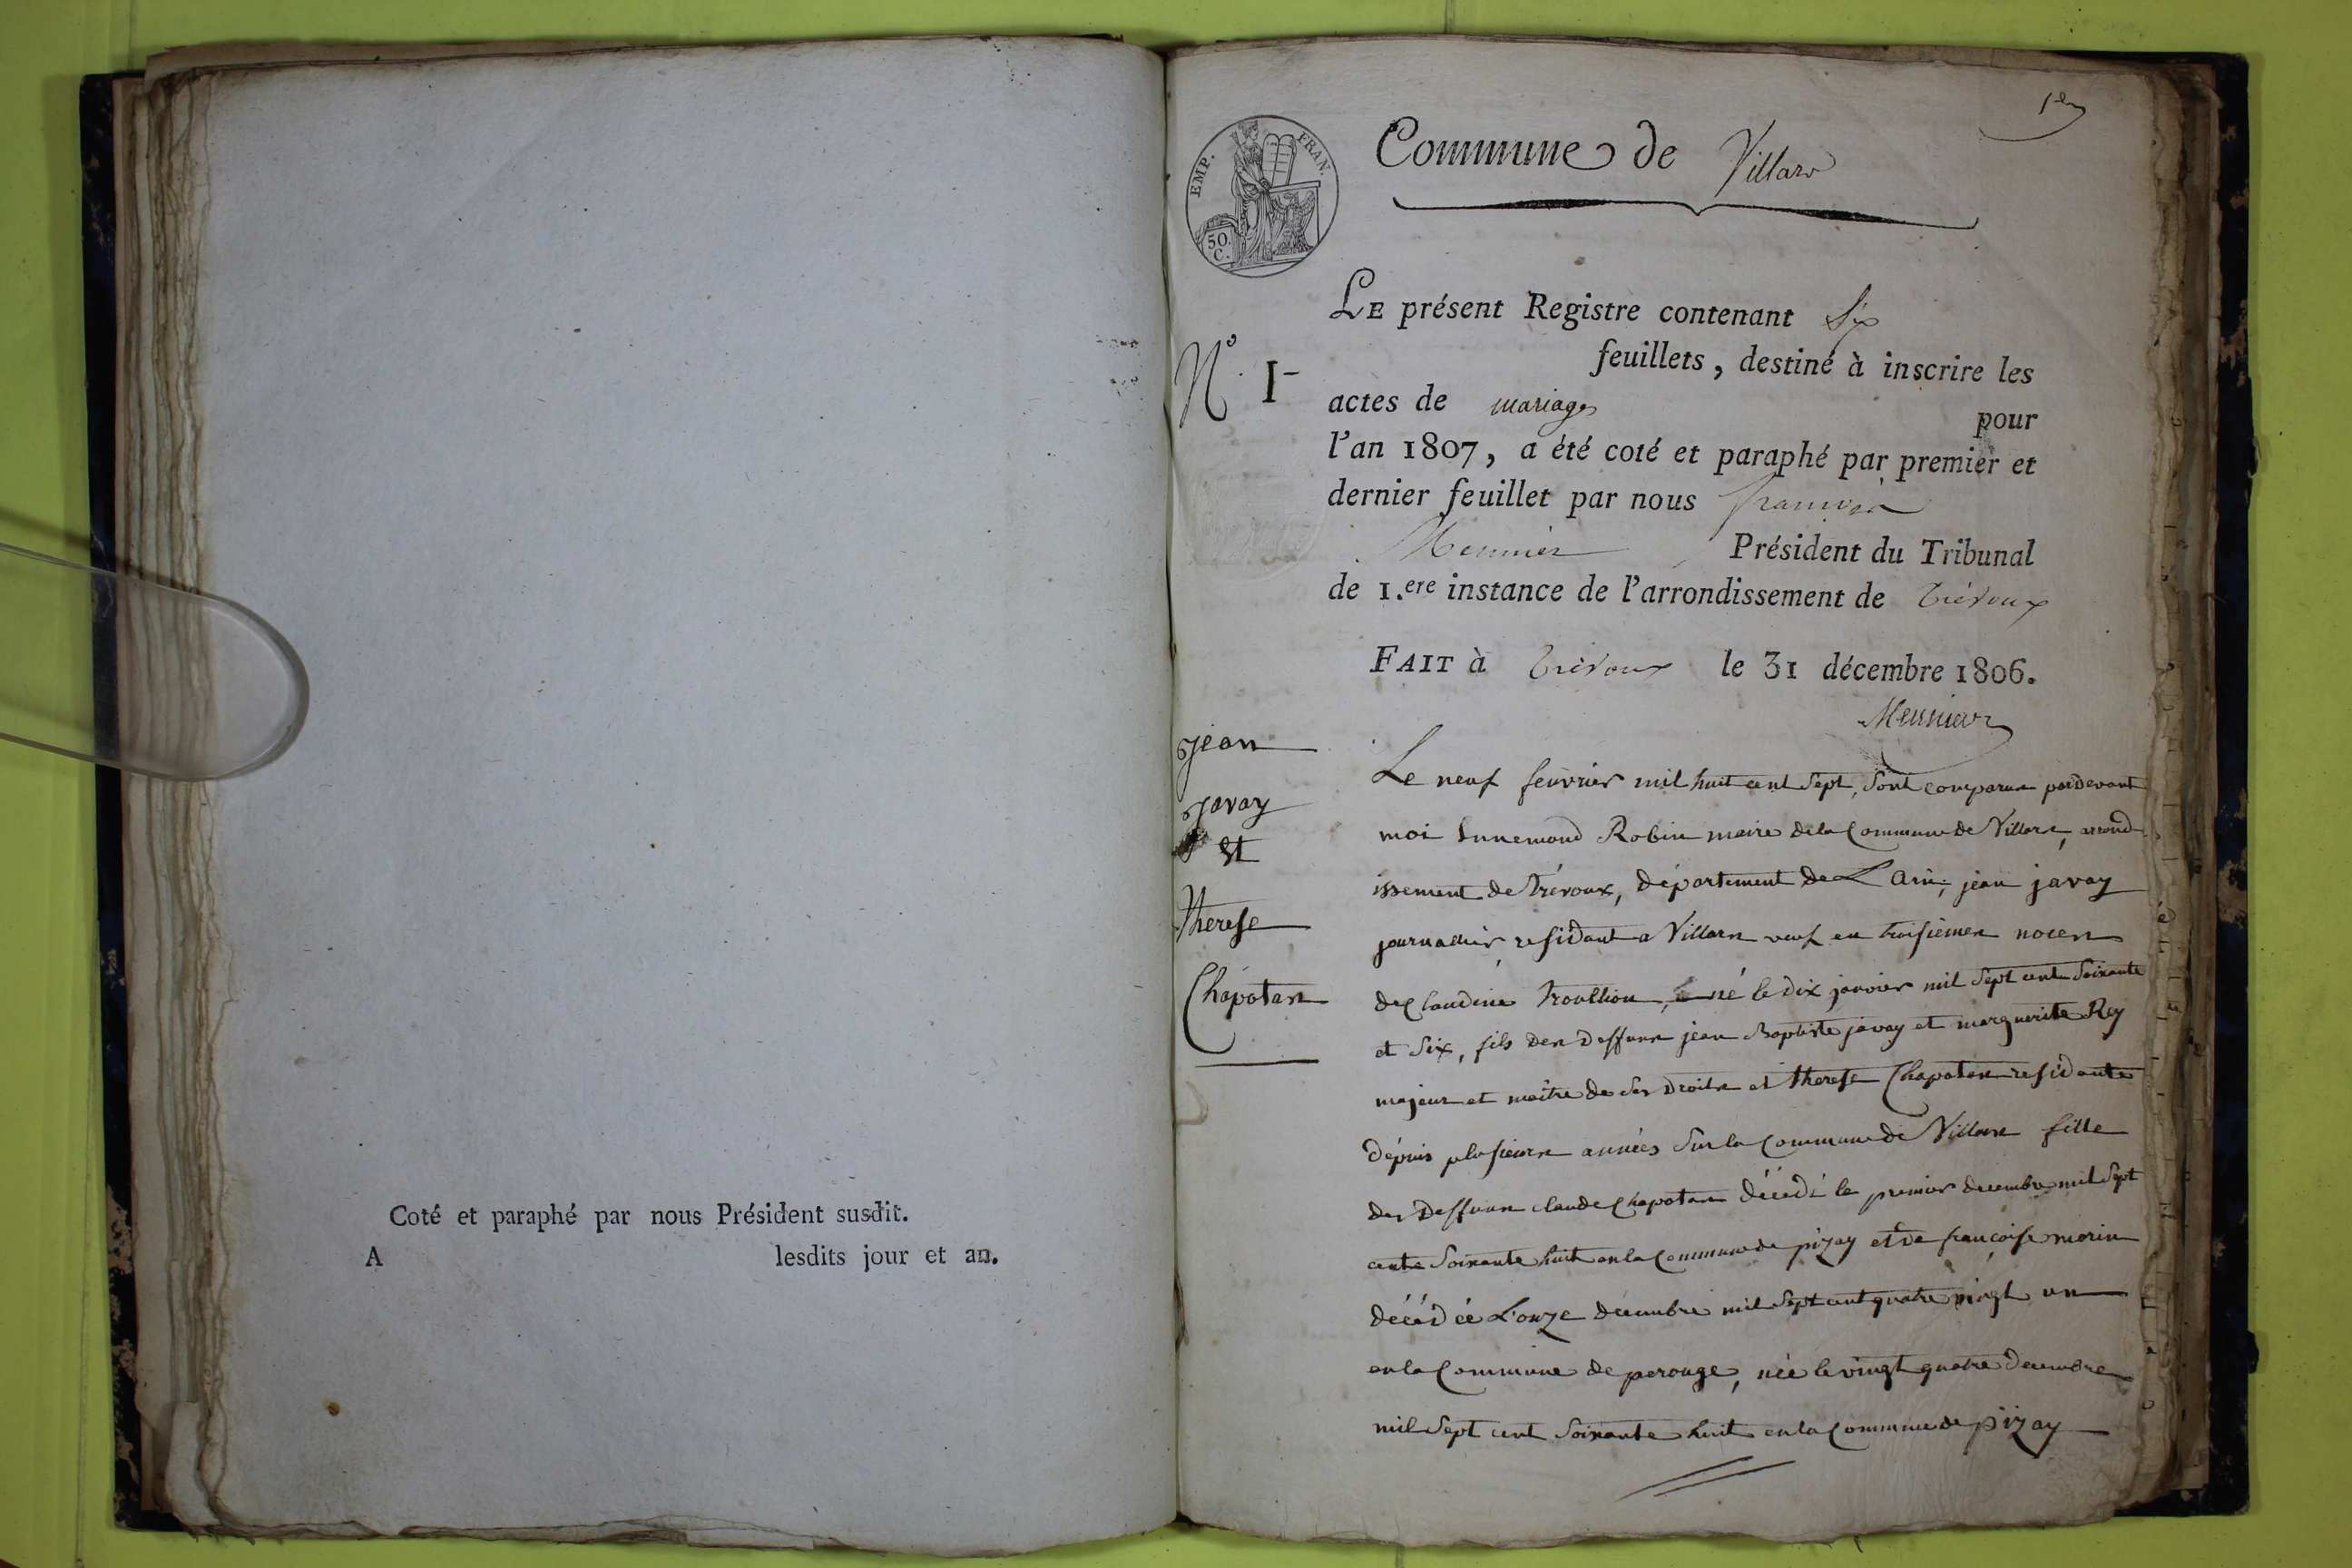 Coté et paraphé par nous Président susdit.
A lesdits jour et an.
1er
EMP. FRAN.
50.
C.
Commune de Villars
LE présent Registre contenant Six
feuillets, destiné à inscrire les
actes de mariages pour
l'an 1807, a été coté et paraphé par premier et
dernier feuillet par nous françois
Meunier Président du Tribunal
de 1.ere instance de l'arrondissement de Trévoux
FAIT à Trévoux le 31 décembre 1806.
Meunier
N° 1
jean
javay
Et
therese
Chapotan
Le neuf fevrier mil huit cent Sept, Sont comparus pardevant
moi Ennemond Robin maire de la Commune de Villars, arrond-
issement de Trévoux, département de L'ain, jean javay
journallier residant a Villars veuf en troisiemes noces
de Claudine né le dix janvier mil Sept cent Soixante
et Six, fils des deffuns jean Baptiste javay et marguerite Rey
majeur et maître de Ses droits et therese Chapotan residante
dépuis plusieurs années Sur la Commune de Villars fille
des deffuns claude Chapotan décédé le premier decembre mil Sept
cents Soixante huit en la Commune de pizay et de françoise morin
décédée L'onze decembre mil Sept cent quatre vingt un
en la Commune de perouge, née le vingt quatre decembre
mil Sept cent Soixante huit en la Commune de pizay